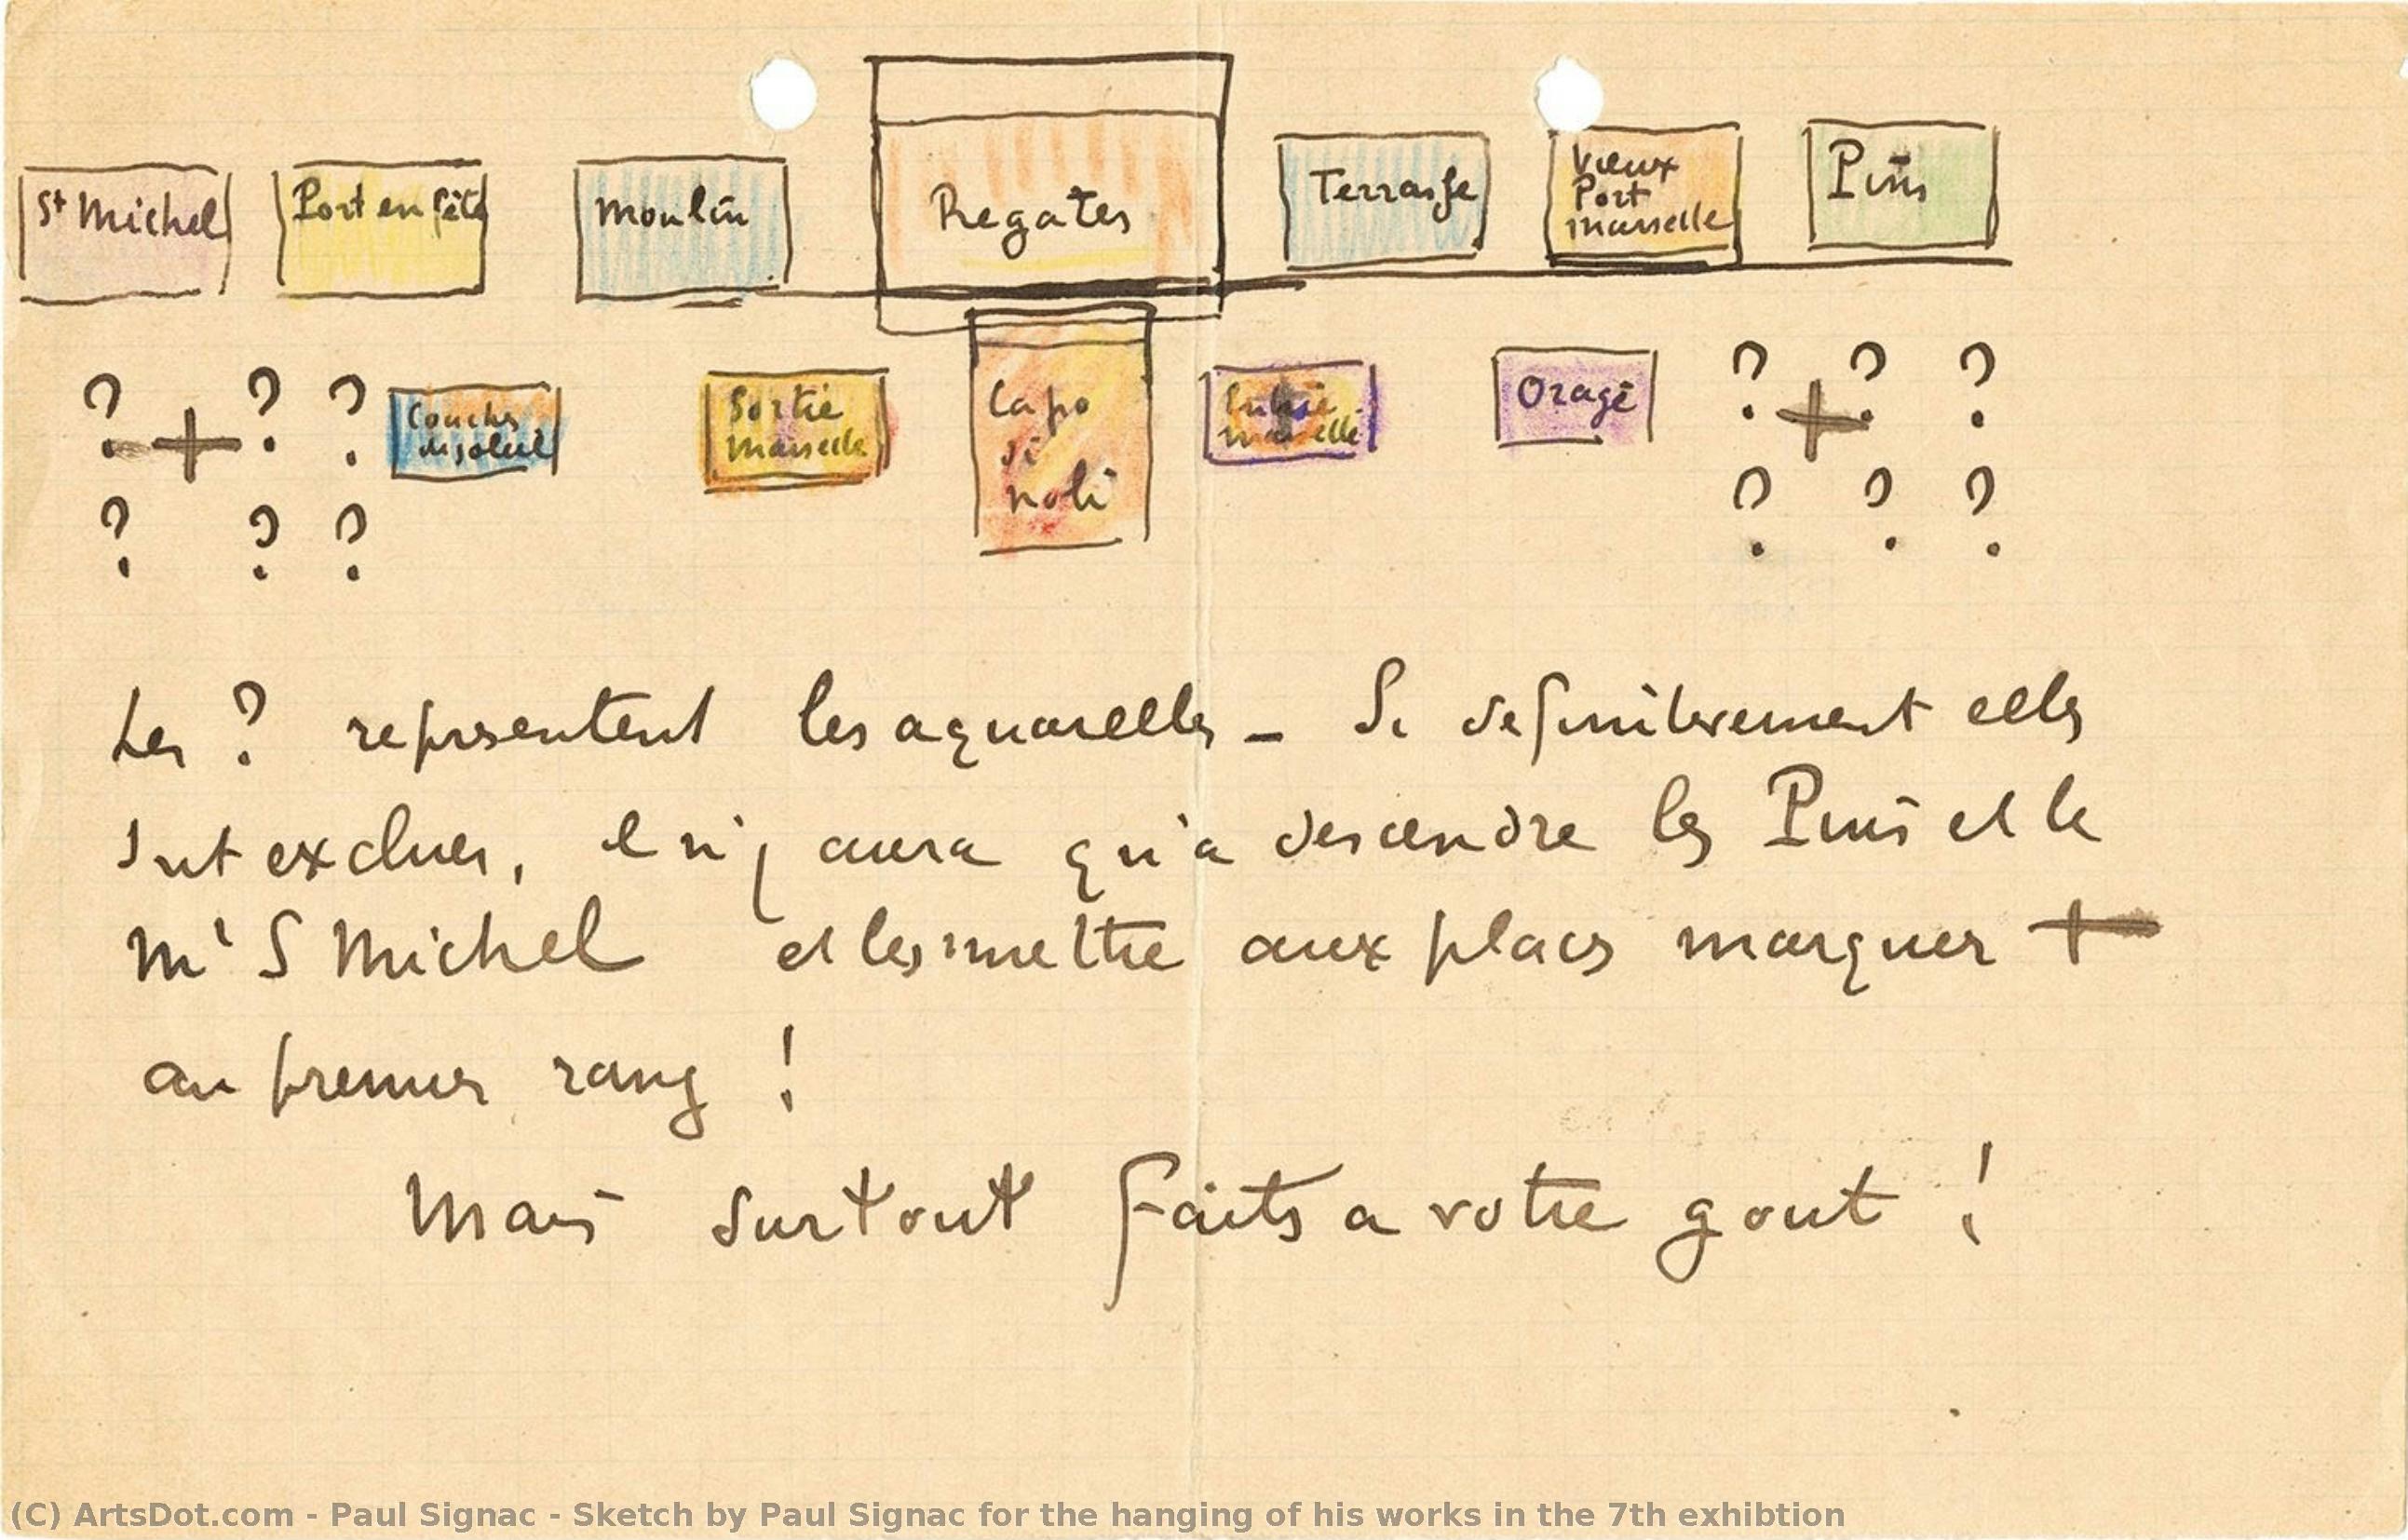 St Michel
Port en fête
Moulin
Regates
Terrasse
Vieux
Port
Marseille
Pins
? + ? ?
Coucher
du soleil
Sortie
Marseille
Capo
di
noli
Marseille
Orage
? + ? ?
? ? ?
? ? ?
Les ? representent les aquarelles _ Si definitivement elles
sont exclues, il n'y aura qu'à descendre les Pins et le
Mt S Michel et les mettre aux places marquées +
au premier rang !
Mais surtout faites a votre gout !
(C) ArtsDot.com - Paul Signac - Sketch by Paul Signac for the hanging of his works in the 7th exhibtion